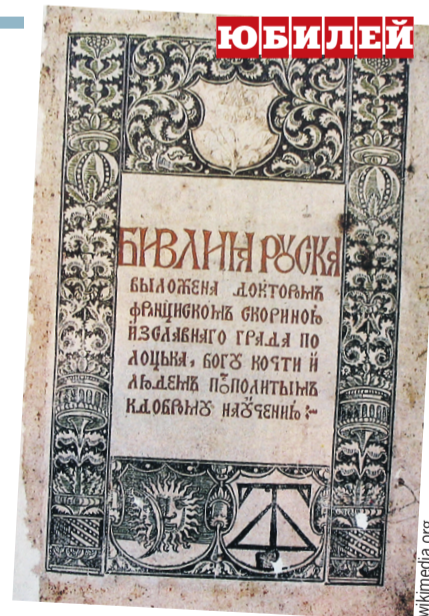 ЮБИЛЕЙ
БИВЛИꙖ РꙊСКА
ВЫЛОЖЕНА ДОКТОРОМЪ
ФРАНЦИСКОМЪ СКОРИНОЮ
ИЗСЛАВНАГО ГРАДА ПО
ЛОЦЬКА, БОГУ КОЧТИ И
ЛЮДЕМЪ ПОСПОЛИТЫМЪ
КДОБРОМꙊ НАꙊЧЕНИЮ :~
wikimedia.org